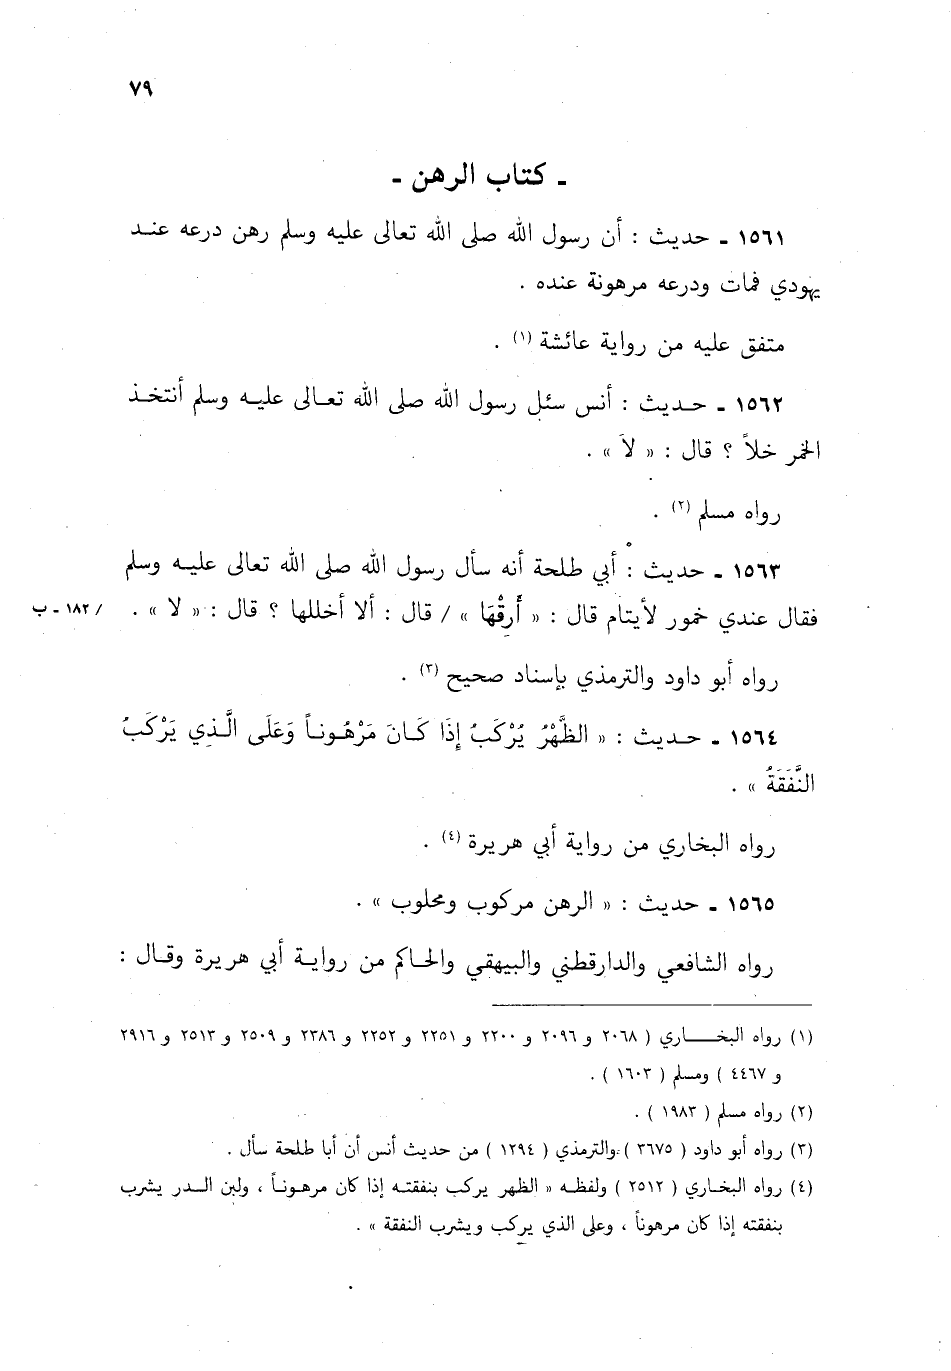 ٧٩
ـ كتاب الرهن ـ
١٥٦١ ـ حديث : أن رسول الله صلى الله تعالى عليه وسلم رهن درعه عنـد
يهودي فمات ودرعه مرهونة عنده .
متفق عليه من رواية عائشة (١) .
١٥٦٢ ـ حـديث : أنس سئـل رسول الله صلى الله تعـالى عليـه وسلم أنتخـذ
الخمر خلاً ؟ قال : « لاَ » .
رواه مسلم (٢) .
١٥٦٣ ـ حديث : أبي طلحة أنه سأل رسول الله صلى الله تعالى عليـه وسلم
فقال عندي خمور لأيتام قال : « أَرِقْهَا » / قال : ألا أخللها ؟ قال : « لا » .
/ ١٨٢ ـ ب
رواه أبو داود والترمذي بإسناد صحيح (٣) .
١٥٦٤ ـ حـديث : « الظَّهْرُ يُرْكَبُ إِذَا كَـانَ مَرْهُـونـاً وَعَلَى الَّـذِي يَرْكَبُ
النَّفَقَةُ » .
رواه البخاري من رواية أبي هريرة (٤) .
١٥٦٥ ـ حديث : « الرهن مركوب ومحلوب » .
رواه الشافعي والدارقطني والبيهقي والحـاكم من روايـة أبي هريرة وقـال :
(١) رواه البخـــاري ( ٢٠٦٨ و ٢٠٩٦ و ٢٢٠٠ و ٢٢٥١ و ٢٢٥٢ و ٢٣٨٦ و ٢٥٠٩ و ٢٥١٣ و ٢٩١٦
و ٤٤٦٧ ) ومسلم ( ١٦٠٣ ) .
(٢) رواه مسلم ( ١٩٨٣ ) .
(٣) رواه أبو داود ( ٣٦٧٥ ) والترمذي ( ١٢٩٤ ) من حديث أنس أن أبا طلحة سأل .
(٤) رواه البخـاري ( ٢٥١٢ ) ولفظـه « الظهر يركب بنفقتـه إذا كان مرهـونـاً ، ولبن الـدر يشرب
بنفقته إذا كان مرهوناً ، وعلى الذي يركب ويشرب النفقة » .